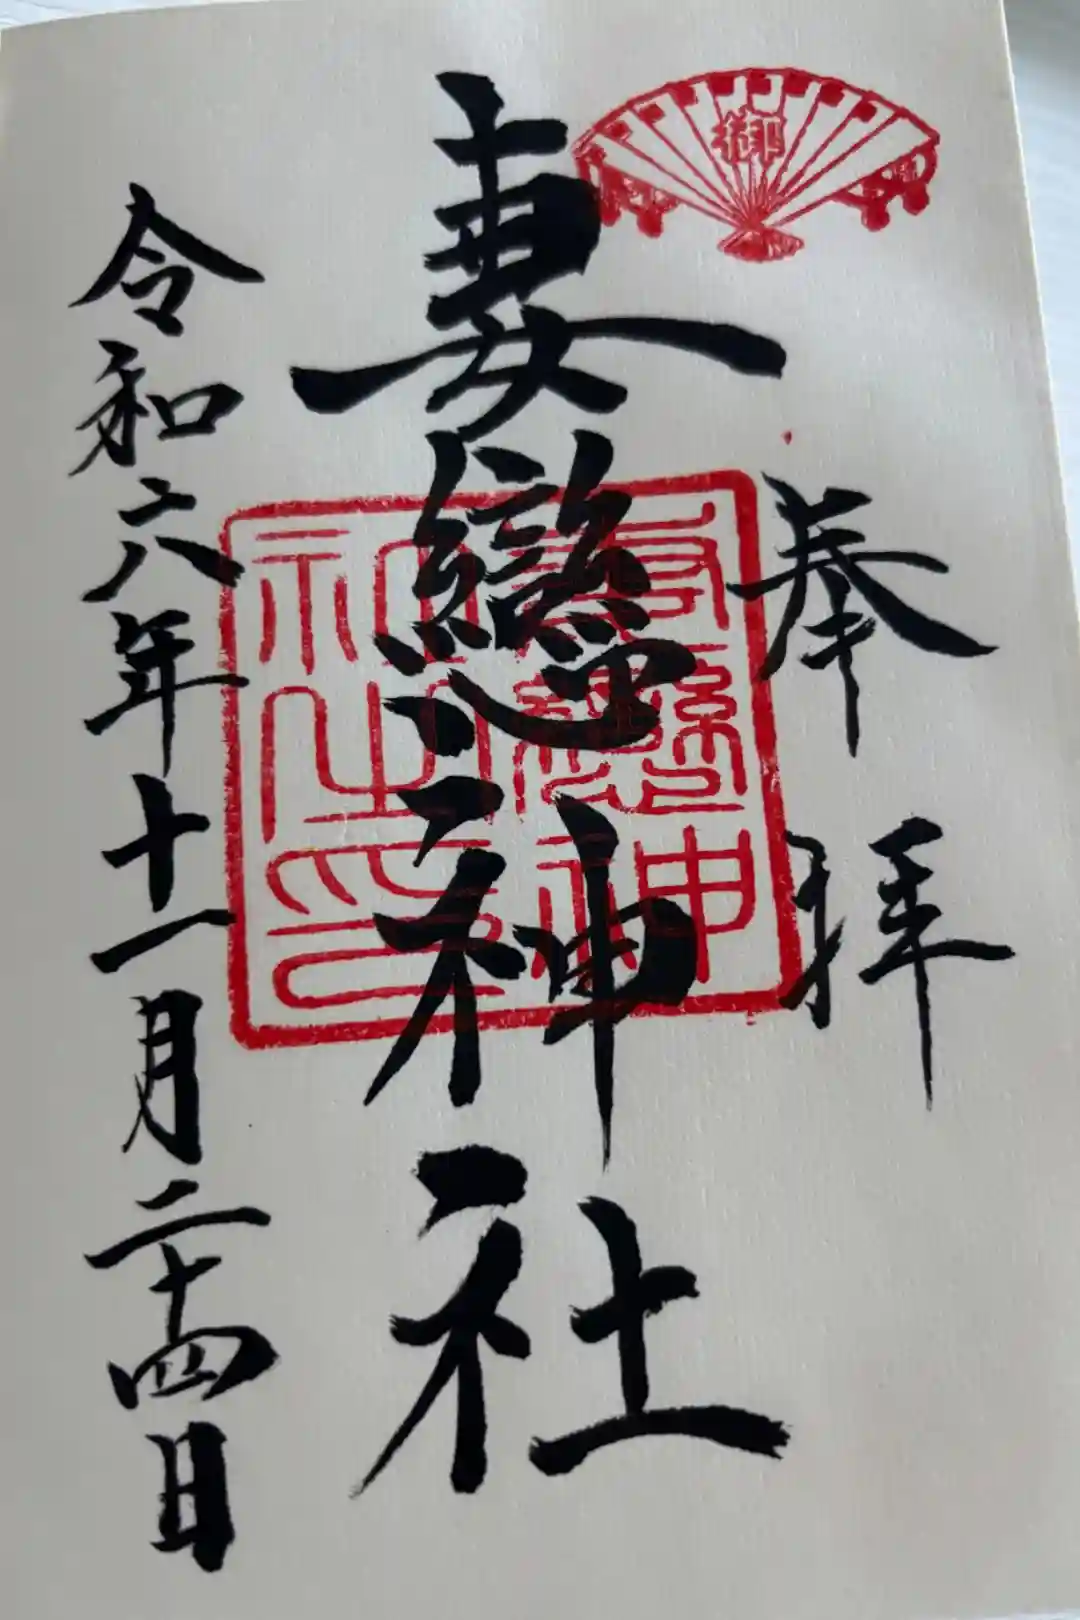 御
奉拝
妻戀神社
妻戀神
社之印
令和六年十一月二十四日